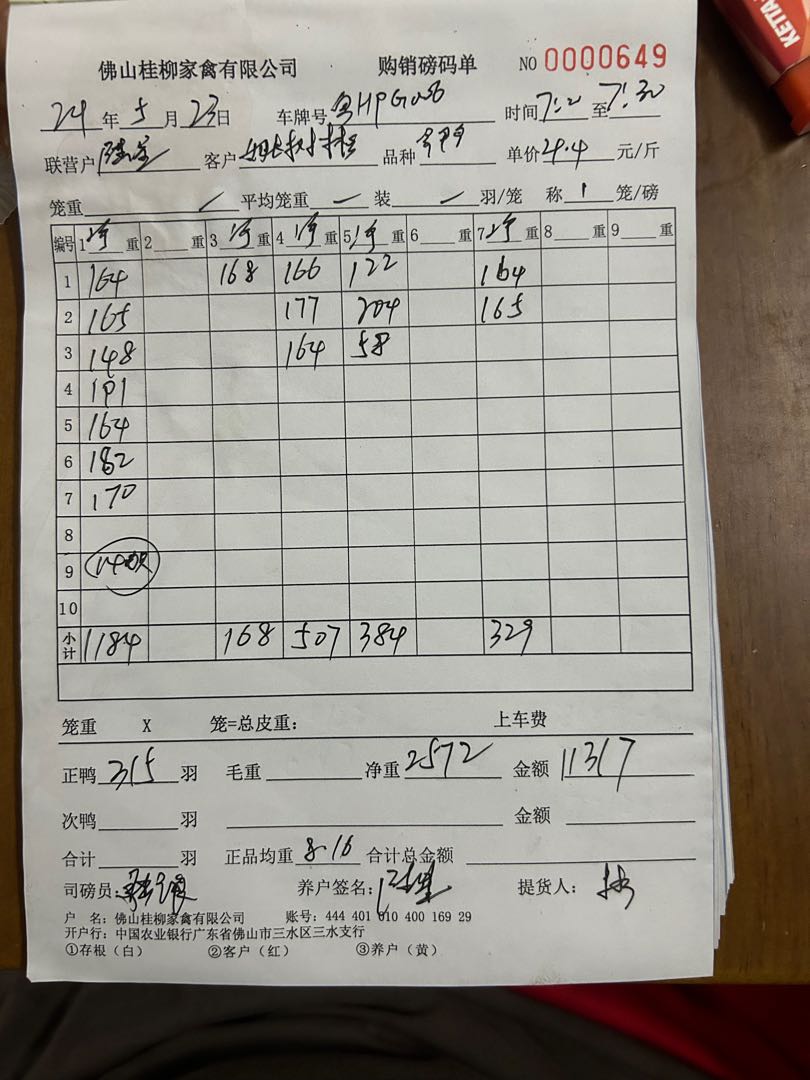 KETTA
佛山桂柳家禽有限公司 购销磅码单 NO 0000649
24年5月23日 车牌号 粤HPG 时间7: 至7:30
联营户 客户 品种 单价4.4元/斤
笼重 ✓ 平均笼重 装 羽/笼 称1笼/磅
编号 1 净重 2 重 3 净重 4 净重 5 净重 6 重 7 净重 8 重 9 重
1 164 168 166 122 164
2 165 177 204 165
3 148 164 58
4 191
5 164
6 182
7 170
8
9
10
小计 1184 168 507 384 329
笼重 X 笼=总皮重: 上车费
正鸭 315 羽 毛重 净重 2572 金额 11317
次鸭 羽 金额
合计 羽 正品均重 8.16 合计总金额
司磅员: 养户签名: 提货人:
户 名: 佛山桂柳家禽有限公司 账号: 444 401 010 400 169 29
开户行: 中国农业银行广东省佛山市三水区三水支行
①存根(白) ②客户(红) ③养户(黄)